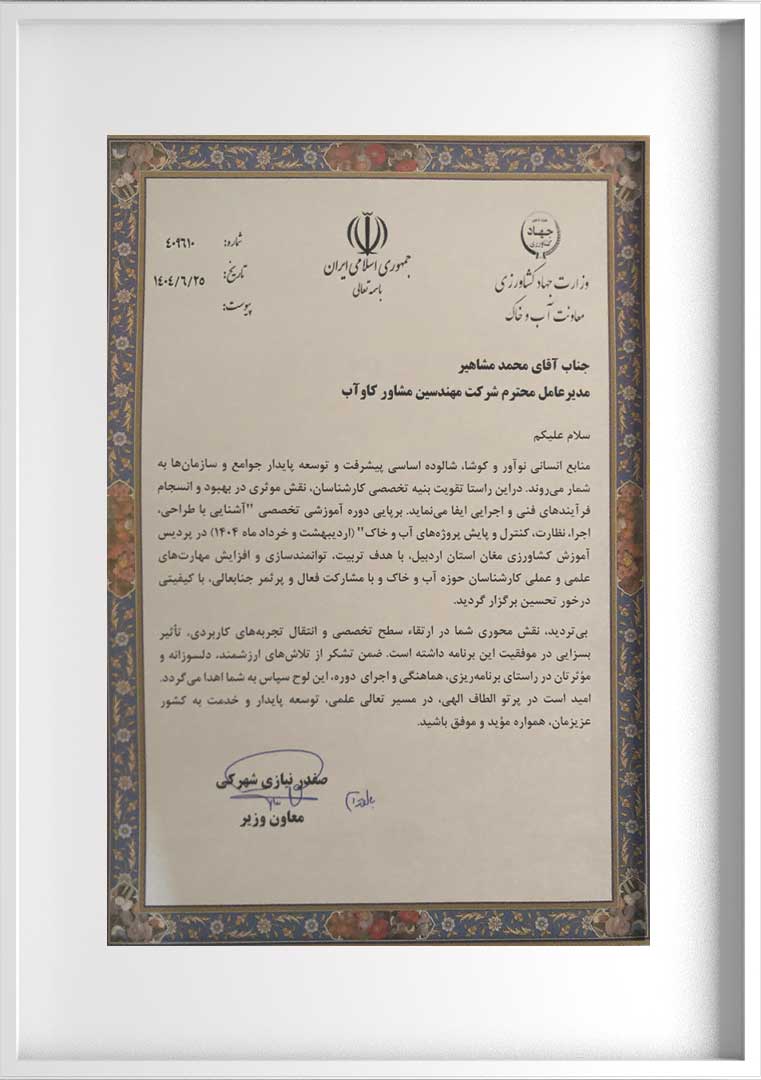 جهاد
کشاورزی
وزارت جهاد کشاورزی
معاونت آب و خاک
جمهوری اسلامی ایران
باسمه تعالی
شماره: ٤٠٩٦١٠
تاریخ: ١٤٠٤/٦/٢٥
پیوست:
جناب آقای محمد مشاهیر
مدیرعامل محترم شرکت مهندسین مشاور کاوآب
سلام علیکم
منابع انسانی نوآور و کوشا، شالوده اساسی پیشرفت و توسعه پایدار جوامع و سازمان‌ها به
شمار می‌روند. دراین راستا تقویت بنیه تخصصی کارشناسان، نقش موثری در بهبود و انسجام
فرآیندهای فنی و اجرایی ایفا می‌نماید. برپایی دوره آموزشی تخصصی "آشنایی با طراحی،
اجرا، نظارت، کنترل و پایش پروژه‌های آب و خاک" (اردیبهشت و خرداد ماه ۱۴۰۴) در پردیس
آموزش کشاورزی مغان استان اردبیل، با هدف تربیت، توانمندسازی و افزایش مهارت‌های
علمی و عملی کارشناسان حوزه آب و خاک و با مشارکت فعال و پرثمر جنابعالی، با کیفیتی
درخور تحسین برگزار گردید.
بی‌تردید، نقش محوری شما در ارتقاء سطح تخصصی و انتقال تجربه‌های کاربردی، تأثیر
بسزایی در موفقیت این برنامه داشته است. ضمن تشکر از تلاش‌های ارزشمند، دلسوزانه و
مؤثرتان در راستای برنامه‌ریزی، هماهنگی و اجرای دوره، این لوح سپاس به شما اهدا می‌گردد.
امید است در پرتو الطاف الهی، در مسیر تعالی علمی، توسعه پایدار و خدمت به کشور
عزیزمان، همواره مؤید و موفق باشید.
صفدر نیازی شهرکی
معاون وزیر